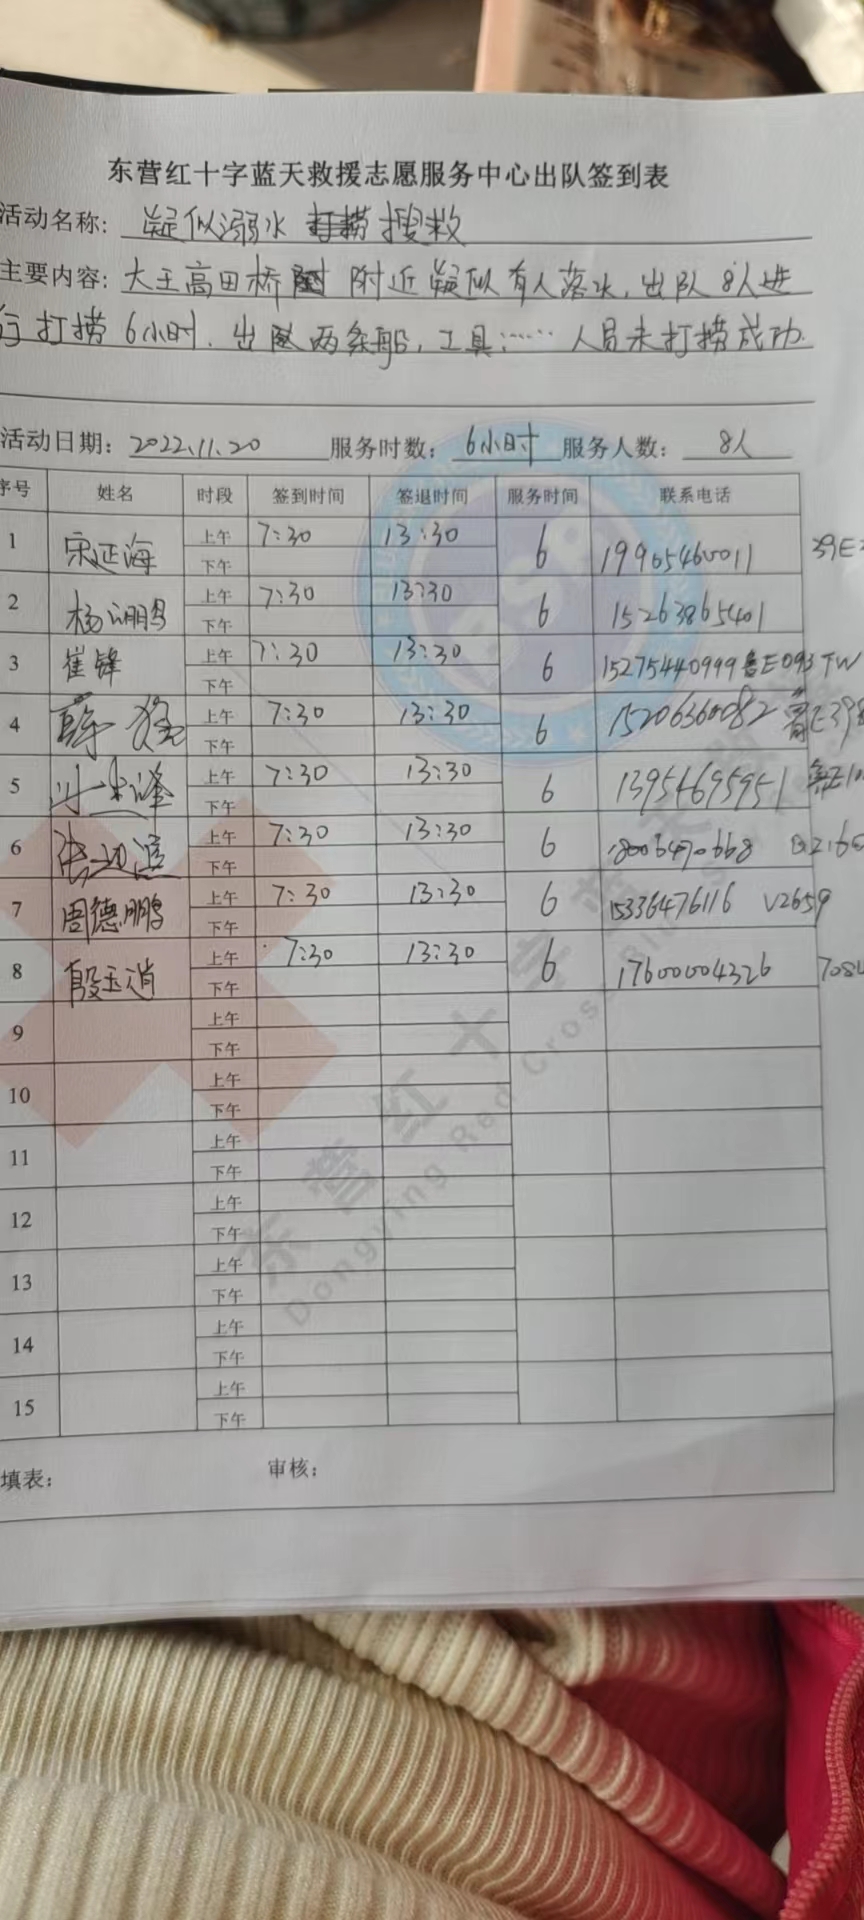 东营红十字蓝天救援志愿服务中心出队签到表
活动名称: 疑似溺水 搜救
主要内容: 大王高田桥 附近疑似有人落水,出队8人进
行打捞6小时.出 两条船,工具:…… 人员未打捞成功.
活动日期: 2022.11.20 服务时数: 6小时 服务人数: 8人
序号 姓名 时段 签到时间 签退时间 服务时间 联系电话
1 宋延海 上午 7:30 13:30 6 19965460011
下午
2 杨 鹏 上午 7:30 13:30 6 15263865401
下午
3 崔锋 上午 7:30 13:30 6 15275440999 鲁E093TW
下午
4 薛 猛 上午 7:30 13:30 6 15206360082 鲁E398
下午
5 上午 7:30 13:30 6 13954695951
下午
6 上午 7:30 13:30 6 18006470668
下午
7 周德鹏 上午 7:30 13:30 6 15336476116 V2659
下午
8 殷玉消 上午 7:30 13:30 6 17600004326
下午
9 上午
下午
10 上午
下午
11 上午
下午
12 上午
下午
13 上午
下午
14 上午
下午
15 上午
下午
填表: 审核:
东营红十字蓝天救援
Dongying Red Cross